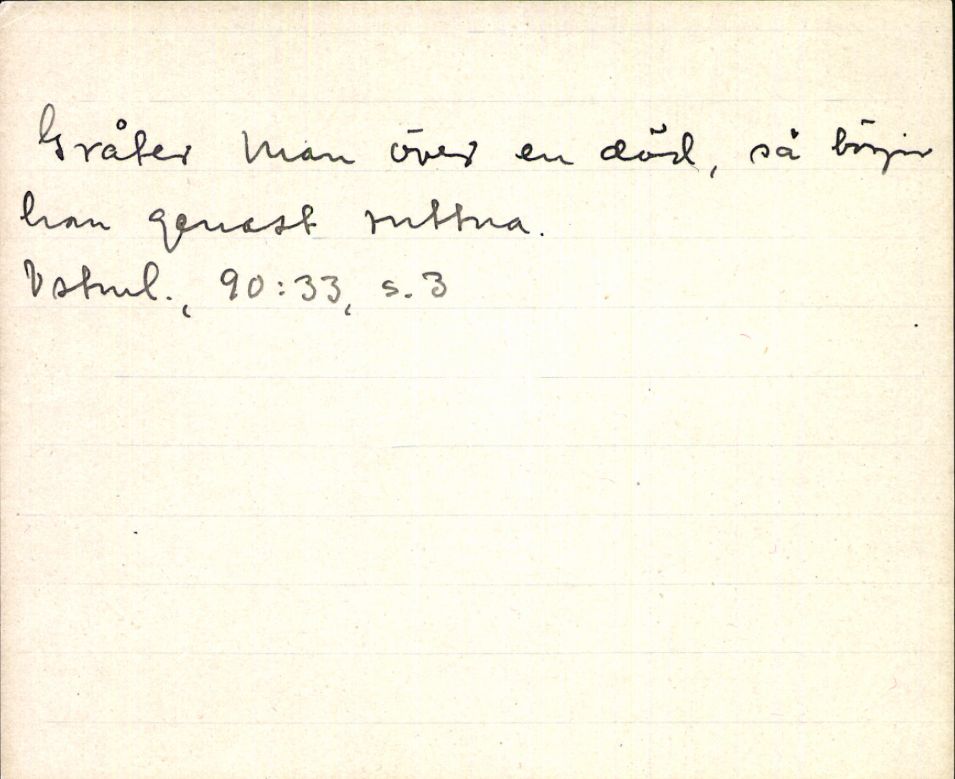 Gråter man över en död, så börjar
han genast ruttna.
Vstml., 90:33, s. 3